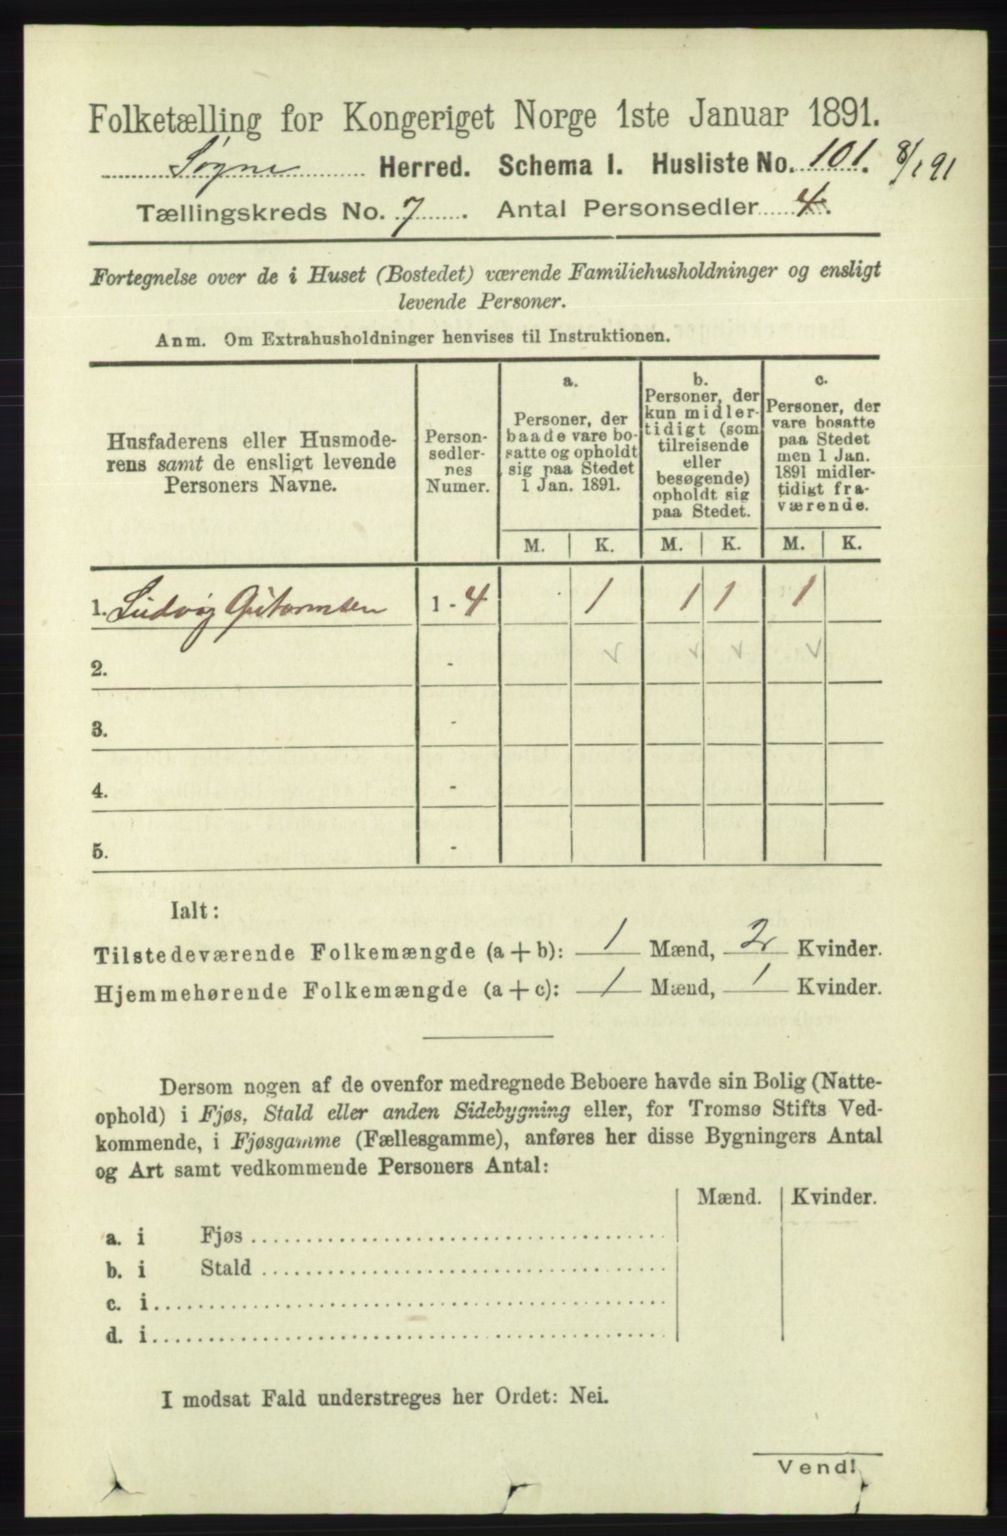 Folketælling for Kongeriget Norge 1ste Januar 1891.
Søgne Herred. Schema I. Husliste No. 101. 8/1 91
Tællingskreds No. 7. Antal Personsedler 4.
Fortegnelse over de i Huset (Bostedet) værende Familiehusholdninger og ensligt
levende Personer.
Anm. Om Extrahusholdninger henvises til Instruktionen.
Husfaderens eller Husmode-
rens samt de ensligt levende
Personers Navne.
Person-
sedler-
nes
Numer.
a.
Personer, der
baade vare bo-
satte og opholdt
sig paa Stedet
1 Jan. 1891.
b.
Personer, der
kun midler-
tidigt (som
tilreisende
eller
besøgende)
opholdt sig
paa Stedet.
c.
Personer, der
vare bosatte
paa Stedet
men 1 Jan.
1891 midler-
tidigt fra-
værende.
M. K. M. K. M. K.
1. Ludvig Gutormsen 1 - 4 1 1 1 1
2. - v v v v
3. -
4. -
5. -
Ialt:
Tilstedeværende Folkemængde (a + b): 1 Mænd, 2 Kvinder.
Hjemmehørende Folkemængde (a + c): 1 Mænd, 1 Kvinder.
Dersom nogen af de ovenfor medregnede Beboere havde sin Bolig (Natte-
ophold) i Fjøs, Stald eller anden Sidebygning eller, for Tromsø Stifts Ved-
kommende, i Fjøsgamme (Fællesgamme), anføres her disse Bygningers Antal
og Art samt vedkommende Personers Antal:
Mænd. Kvinder.
a. i Fjøs
b. i Stald
c. i
d. i
I modsat Fald understreges her Ordet: Nei.
Vend!